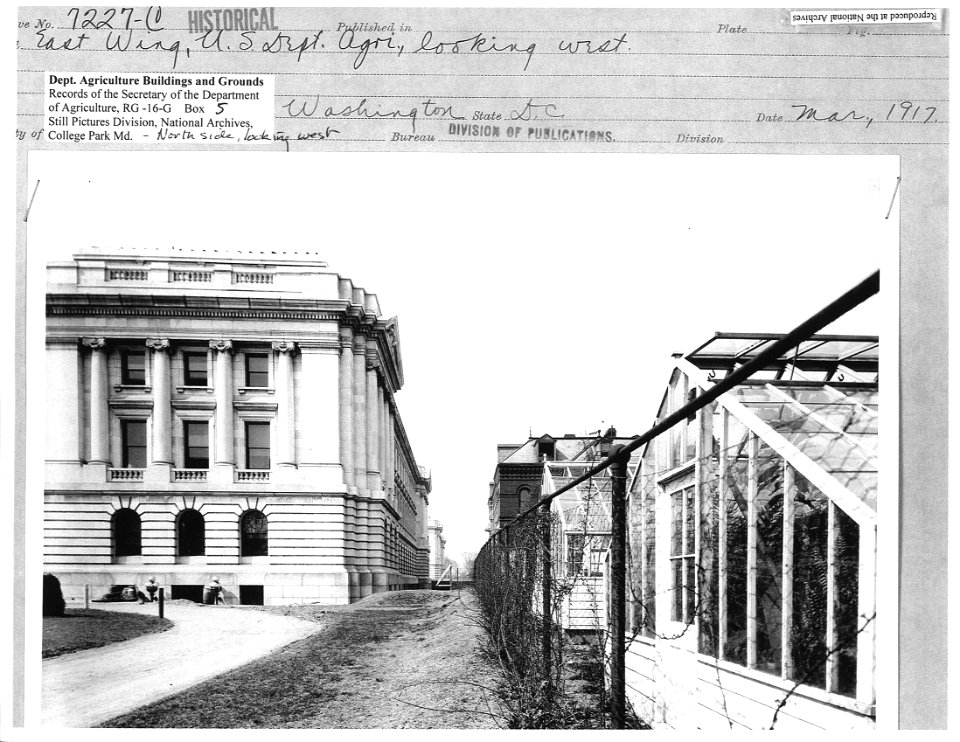 ve No. 7227-C HISTORICAL Published in Plate Fig.
East Wing, U.S. Dept. Agri., looking west.
Reproduced at the National Archives
Dept. Agriculture Buildings and Grounds
Records of the Secretary of the Department
of Agriculture, RG -16-G Box 5
Still Pictures Division, National Archives,
College Park Md. - North side, looking west
Washington State D.C. Date Mar., 1917.
by of Bureau DIVISION OF PUBLICATIONS. Division